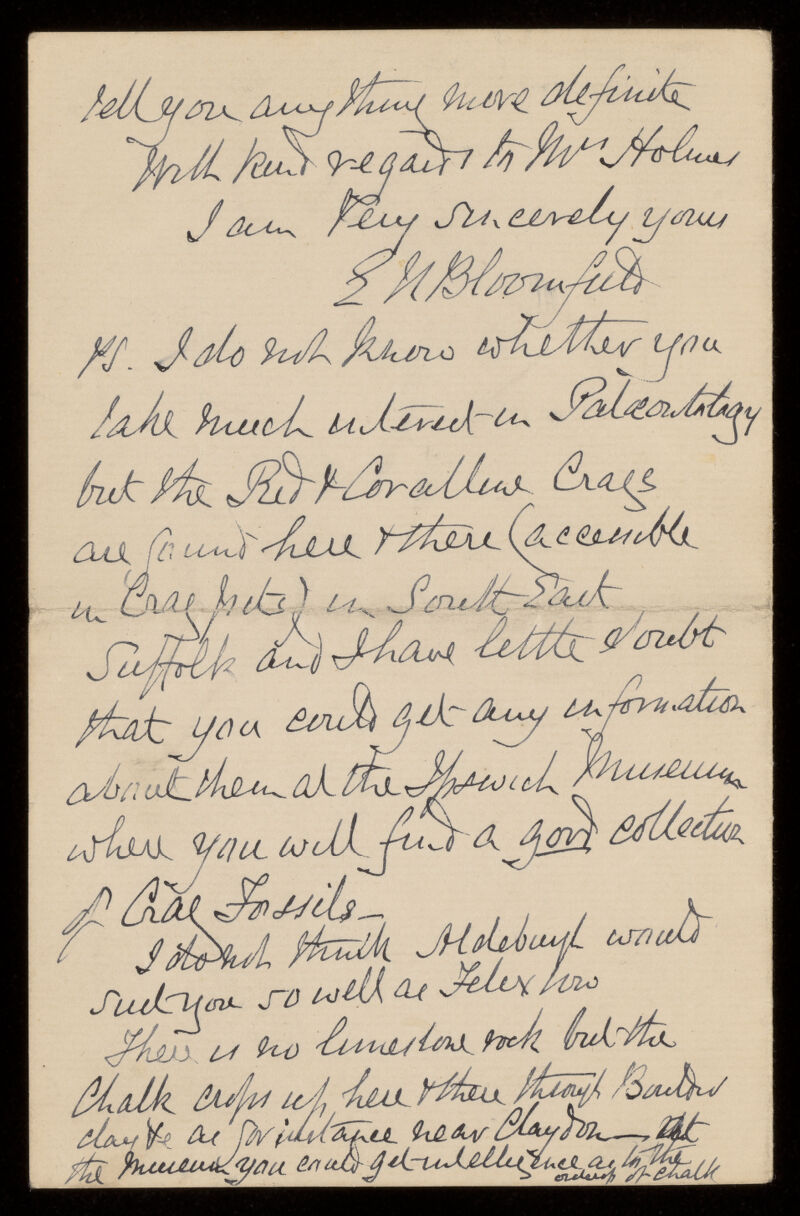 tell you anything more definite
With kind regards to Mrs Holmes
I am Very sincerely yours
E N Bloomfield
P.S. I do not know whether you
take much interest in Palæontology
but the Red & Coralline Crags
are found here & there (accessible
in Crag pits) in South East
Suffolk and I have little doubt
that you could get any information
about them at the Ipswich Museum
where you will find a good collection
of Crag Fossils—
I do not think Aldeburgh would
suit you so well as Felixtow
There is no limestone rock but the
Chalk crops up here & there through Boulder
clay &c as for instance near Claydon— At
the Museum you could get intelligence as to the
outcrop of chalk